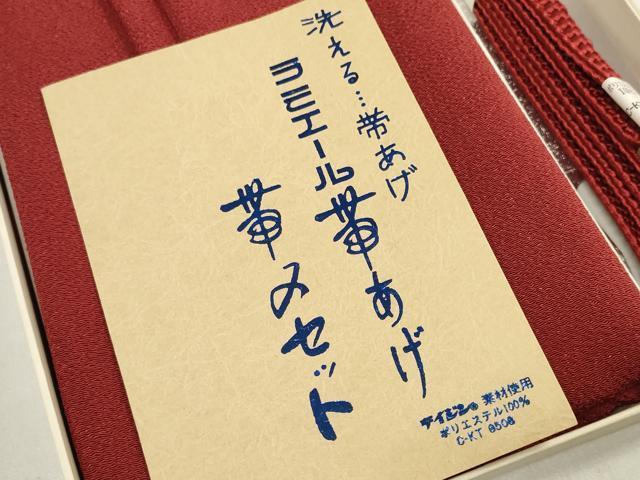 洗える…帯あげ
ラミエール帯あげ
帯〆セット
テイジン®素材使用
ポリエステル100%
C-KT 8508